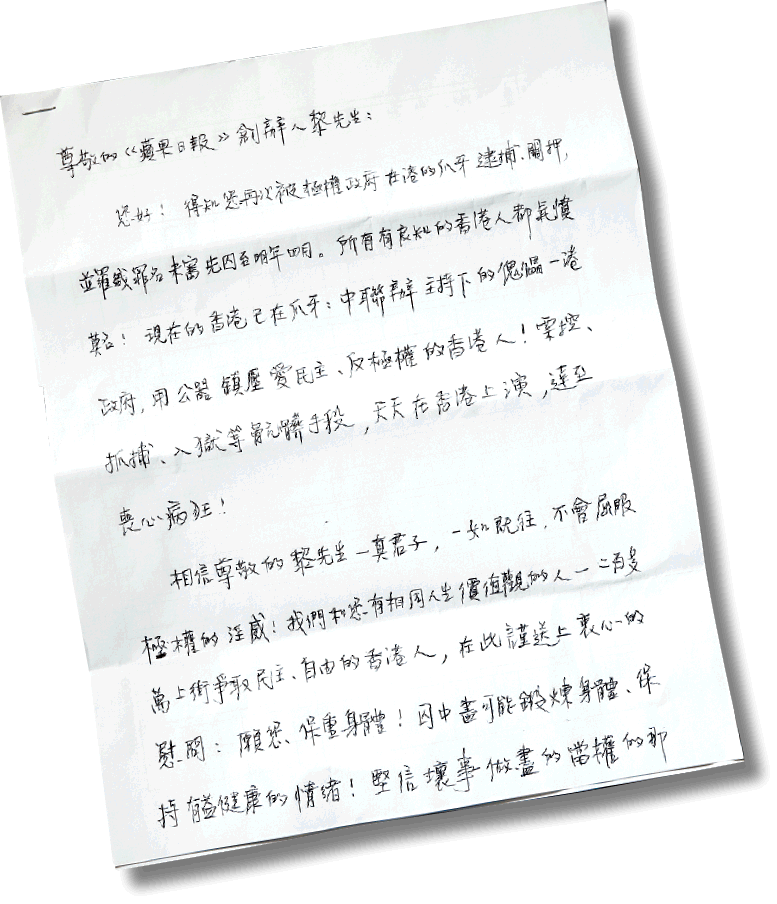 尊敬的《蘋果日報》創辦人黎先生：
您好！得知您再次被極權政府在港的爪牙逮捕、關押，
並羅織罪名未審先囚至明年四月。所有有良知的香港人都氣憤
莫名！現在的香港已在爪牙：中聯辦主持下的傀儡一港
政府，用公器鎮壓愛民主、反極權的香港人！票控、
抓捕、入獄等骯髒手段，天天在香港上演，達至
喪心病狂！
相信尊敬的黎先生一真君子，一如既往，不會屈服
極權的淫威！我們和您有相同人生價值觀的人一二百多
萬上街爭取民主、自由的香港人，在此謹送上衷心的
慰問：願您、保重身體！囚中盡可能鍛煉身體、保
持有益健康的情緒！堅信壞事做盡的當權的那